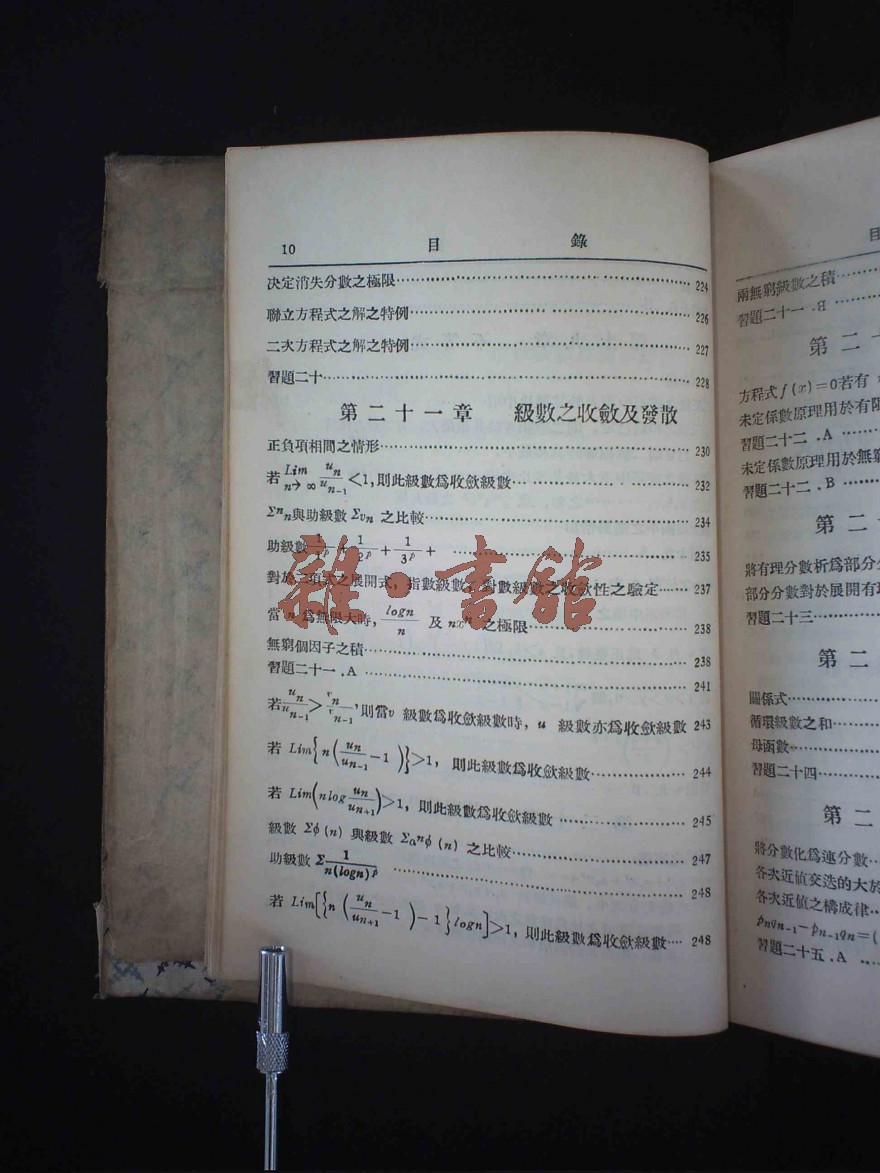 10 目 錄
决定消失分數之極限 224
聯立方程式之解之特例 226
二次方程式之解之特例 227
習題二十 228
第二十一章 級數之收斂及發散
正負項相間之情形 230
若 Lim n→∞ u_n/u_{n-1} <1,則此級數爲收斂級數 232
Σn_n與助級數 Σv_n 之比較 234
助級數 1/1^p + 1/2^p + 1/3^p + 235
對於二項式之展開式,指數級數,對數級數之收歛性之驗定 237
當 n 爲無限大時, logn/n 及 nx^n 之極限 238
無窮個因子之積 238
習題二十一 .A 241
若 u_n/u_{n-1} > v_n/v_{n-1},則當v 級數爲收歛級數時, u 級數亦爲收歛級數 243
若 Lim{n(u_n/u_{n-1} −1)}>1, 則此級數爲收歛級數 244
若 Lim(nlog u_n/u_{n+1})>1, 則此級數爲收歛級數 245
級數 Σϕ(n) 與級數 Σa^nϕ(n) 之比較 247
助級數 Σ 1/n(logn)^p 248
若 Lim[{n(u_n/u_{n+1} −1)−1}logn]>1, 則此級數爲收歛級數 248
雜·書館
目
兩無窮級數之積
習題二十一 .B
第二十
方程式f(x)=0若有
未定係數原理用於有限
習題二十二 .A
未定係數原理用於無窮
習題二十二 .B
第二十
將有理分數析爲部分分
部分分數對於展開有理
習題二十三
第二
關係式
循環級數之和
母函數
習題二十四
第二
將分數化爲連分數
各次近値交迭的大於
各次近値之構成律
p_nq_{n-1}−p_{n-1}q_n=(
習題二十五 .A